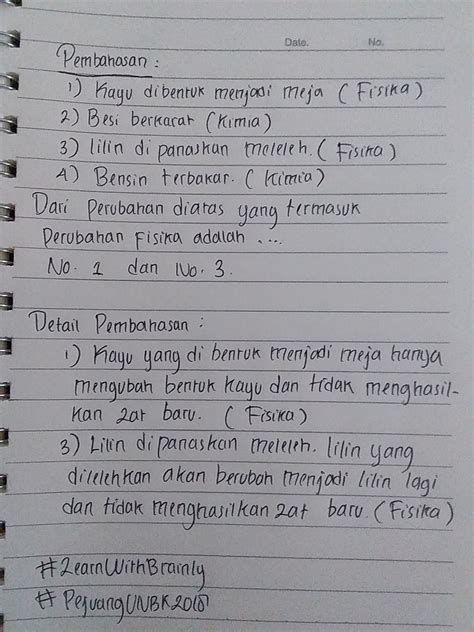 Date. No.
Pembahasan :
1) Kayu dibentuk menjadi meja (Fisika)
2) Besi berkarat (Kimia)
3) lilin di panaskan meleleh. (Fisika)
4) Bensin terbakar. (Kimia)
Dari Perubahan diatas yang termasuk
Perubahan Fisika adalah ....
No. 1 dan No. 3.
Detail Pembahasan :
1) Kayu yang di bentuk menjadi meja hanya
mengubah bentuk kayu dan tidak menghasil-
kan zat baru. (Fisika)
3) Lilin dipanaskan meleleh. lilin yang
dilelehkan akan berubah menjadi lilin lagi
dan tidak menghasilkan zat baru. (Fisika)
#LearnWithBrainly
# PejuangUNBK2018